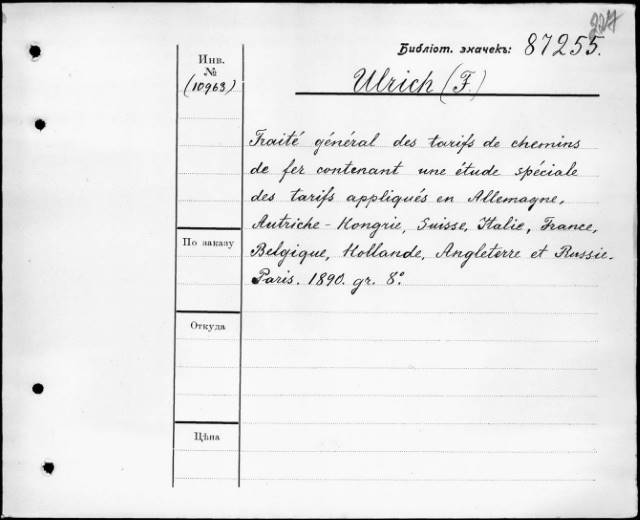 227
Библіот. значекъ: 87255.
Инв.
№
(10963)
Ulrich (F.)
Traité général des tarifs de chemins
de fer contenant une étude spéciale
des tarifs appliqués en Allemagne,
Autriche-Hongrie, Suisse, Italie, France,
Belgique, Hollande, Angleterre et Russie.
Paris. 1890. gr. 8°.
По заказу
Откуда
Цѣна